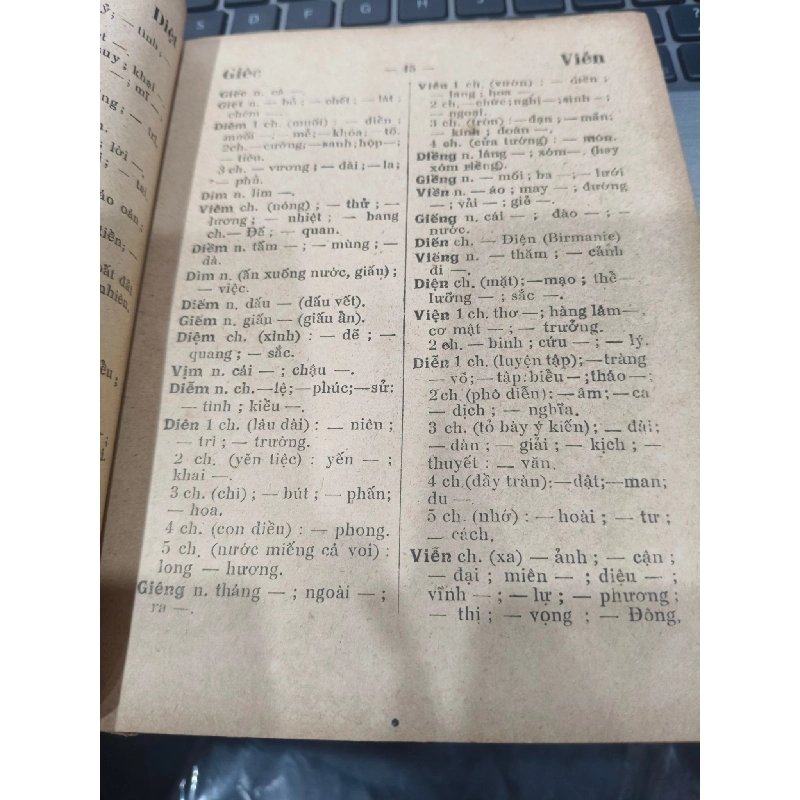 Giếc
— 45 —
Viễn
Giếc n. cá —.
Giết n. — hổ ; — chết ; — lát ;
chém —.
Diêm 1 ch. (muối) : — điền ;
muối — mề; khóa; tố.
2ch.— cường; —sanh; hộp—;
— tiên.
3 ch. — vương ; — đài ; — la;
— phủ.
Dim n. lim —.
Viêm ch. (nóng) ; — thử ; —
lương ; — nhiệt ; — bang
ch.— Đế ; — quan.
Diềm n. tấm — ; — mùng ; —
dà.
Dìm n. (ấn xuống nước, giấu) ;
— việc.
Diếm n. dấu — (dấu vết).
Giếm n. giấu — (giấu ẩn).
Diệm ch. (xinh) : — dẽ ; —
quang ; — sắc.
Vịm n. cái — ; chậu —.
Diễm n. ch.—lệ; —phúc;—sử:
— tình ; kiều —.
Diên 1 ch. (lâu dài) : — niên ;
— trì ; — trường.
2 ch. (yên tiệc) : yến — ;
khai —.
3 ch. (chì) ; — bút ; — phấn;
— hoa.
4 ch. (con diều) : — phong.
5 ch. (nước miếng cá voi) :
long — hương.
Giêng n. tháng — ; ngoài — ;
ra —.
Viên 1 ch. (vườn) : — điền ;
— lang ; hoa —.
2 ch. —chức; nghị —; sinh —;
— ngoại.
3 ch. (tròn) : — đạn ; — mãn;
— kính ; đoàn —.
4 ch. (cửa tường) : — môn.
Diềng n. láng — ; xóm— (hay
xóm riềng).
Giềng n. — mối ; ba — ; — lưới
Viền n. — áo ; may — ; đường
— ; vải — ; giỏ —.
Giếng n. cái — ; đào — ; —
nước.
Diến ch. — Điện (Birmanie)
Viếng n. — thăm ; — cảnh
đi —.
Diện ch. (mặt); —mạo ; thể —
lưỡng — ; sắc —.
Viện 1 ch. thơ —; hàng lâm—.
cơ mật — ; — trưởng.
2 ch. — binh ; cứu — ; — lý.
Diễn 1 ch. (luyện tập);—tràng
— võ; —tập: biểu— ;tháo—:
2ch. (phô diễn) : —âm;— ca
— dịch ; — nghĩa.
3 ch. (tỏ bày ý kiến); — đài;
— đàn ; — giải ; — kịch ; —
thuyết : — văn.
4 ch.(đầy tràn):—dật;—man;
du —.
5 ch. (nhớ) : — hoài ; — tư ;
— cách.
Viễn ch. (xa) — ảnh ; — cận ;
— đại ; miên — ; diệu — ;
vĩnh — ; — lự ; — phương ;
— thị ; — vọng ; — Đông.
Diệt